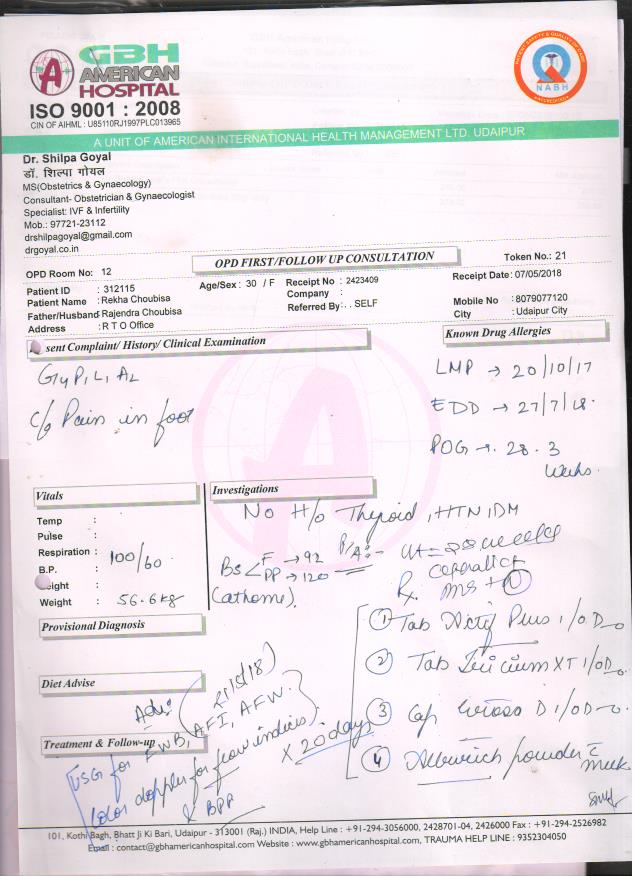 GBH
AMERICAN
HOSPITAL
ISO 9001 : 2008
CIN OF AIHML : U85110RJ1997PLC013965
NABH
A UNIT OF AMERICAN INTERNATIONAL HEALTH MANAGEMENT LTD. UDAIPUR
Dr. Shilpa Goyal
डॉ. शिल्पा गोयल
MS(Obstetrics & Gynaecology)
Consultant- Obstetrician & Gynaecologist
Specialist: IVF & Infertility
Mob.: 97721-23112
drshilpagoyal@gmail.com
drgoyal.co.in
OPD FIRST/FOLLOW UP CONSULTATION
Token No.: 21
OPD Room No: 12
Patient ID : 312115
Age/Sex : 30 / F
Receipt No : 2423409
Receipt Date: 07/05/2018
Patient Name : Rekha Choubisa
Company :
Mobile No : 8079077120
Father/Husband Rajendra Choubisa
Referred By: . . SELF
City : Udaipur City
Address : R T O Office
sent Complaint/ History/ Clinical Examination
Known Drug Allergies
LMP → 20/10/17
EDD → 27/7/18.
POG → 28.3
weeks.
c/o Pain in foot
Vitals
Investigations
No H/o Thyroid, HTN, DM
Temp :
Pulse :
Respiration :
B.P. : 100/60
eight :
Weight : 56.6 kg
BS F → 92
PP → 120
(at home).
P/A:-
Rx.
Provisional Diagnosis
Diet Advise
Treatment & Follow-up
① Tab Plus 1/OD
② Tab XT 1/OD
③ Cap D 1/OD
④ powder c̄ milk
x 20 days
Adv:
USG for FWB, AFI, AFW.
Color doppler for flow indices).
& BPP
101, Kothi Bagh, Bhatt Ji Ki Bari, Udaipur - 313001 (Raj.) INDIA, Help Line : +91-294-3056000, 2428701-04, 2426000 Fax : +91-294-2526982
Email : contact@gbhamericanhospital.com Website : www.gbhamericanhospital.com, TRAUMA HELP LINE : 9352304050